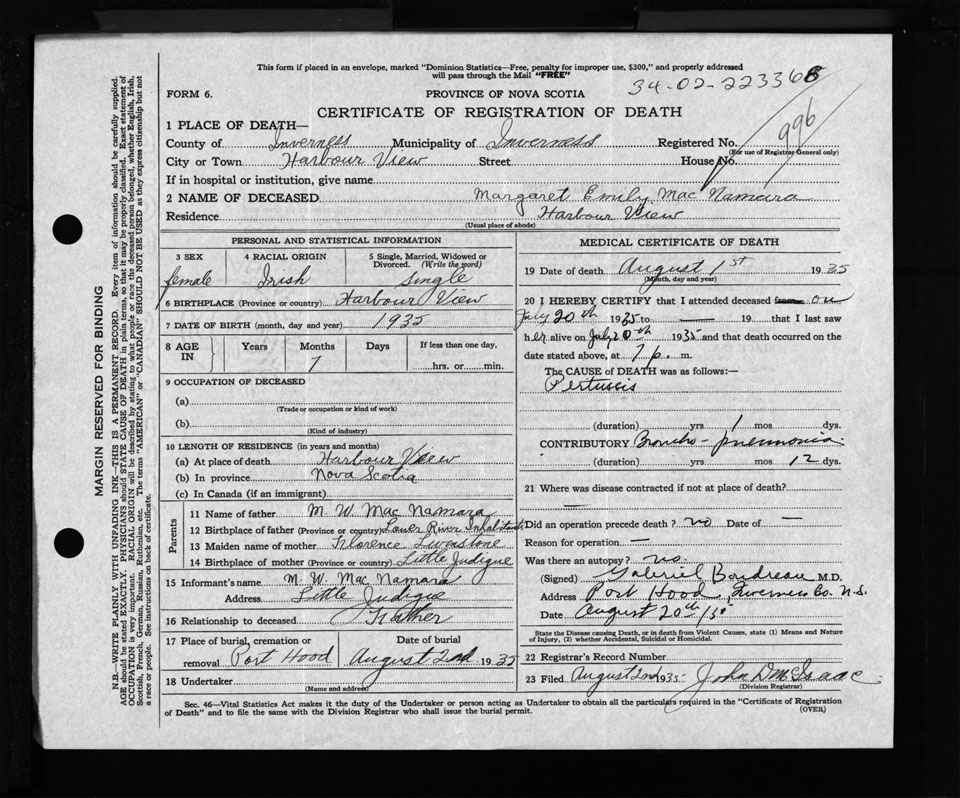 This form if placed in an envelope, marked "Dominion Statistics—Free, penalty for improper use, $300," and properly addressed
will pass through the Mail "FREE"
34-02-223368
FORM 6.
PROVINCE OF NOVA SCOTIA
CERTIFICATE OF REGISTRATION OF DEATH
996
1 PLACE OF DEATH—
County of Inverness Municipality of Inverness Registered No.
(For use of Registrar General only)
City or Town Harbour View Street House No.
If in hospital or institution, give name
2 NAME OF DECEASED Margaret Emily Mac Namara
Residence Harbour View
(Usual place of abode)
PERSONAL AND STATISTICAL INFORMATION
3 SEX 4 RACIAL ORIGIN 5 Single, Married, Widowed or Divorced. (Write the word)
female Irish Single
6 BIRTHPLACE (Province or country) Harbour View
7 DATE OF BIRTH (month, day and year) 1935
8 AGE IN Years Months Days If less than one day,
7 hrs. or min.
9 OCCUPATION OF DECEASED
(a)
(Trade or occupation or kind of work)
(b)
(Kind of industry)
10 LENGTH OF RESIDENCE (in years and months)
(a) At place of death Harbour View
(b) In province Nova Scotia
(c) In Canada (if an immigrant)
Parents
11 Name of father M. W. Mac Namara
12 Birthplace of father (Province or country) Lower River Inhabitants
13 Maiden name of mother Florence Livenstone
14 Birthplace of mother (Province or country) Little Judique
15 Informant's name M. W. Mac Namara
Address Little Judique
16 Relationship to deceased Father
17 Place of burial, cremation or removal Port Hood Date of burial August 2nd 1935
18 Undertaker
(Name and address)
MEDICAL CERTIFICATE OF DEATH
19 Date of death August 1st 1935
(Month, day and year)
20 I HEREBY CERTIFY that I attended deceased from on
July 20th 1935 to — 19 that I last saw
her alive on July 20th 1935 and that death occurred on the
date stated above, at 7 p. m.
The CAUSE of DEATH was as follows:—
Pertussis
(duration) yrs 1 mos dys.
CONTRIBUTORY Broncho-pneumonia
(duration) yrs mos 12 dys.
21 Where was disease contracted if not at place of death?
—
Did an operation precede death? no Date of —
Reason for operation —
Was there an autopsy? no
(Signed) Gabriel Boudreau M.D.
Address Port Hood Inverness Co. N.S.
Date August 20th /35
State the Disease causing Death, or in death from Violent Causes, state (1) Means and Nature
of Injury, (2) whether Accidental, Suicidal or Homicidal.
22 Registrar's Record Number
23 Filed August 2nd 1935 John D McIsaac
(Division Registrar)
Sec. 46—Vital Statistics Act makes it the duty of the Undertaker or person acting as Undertaker to obtain all the particulars required in the "Certificate of Registration
of Death" and to file the same with the Division Registrar who shall issue the burial permit.
(OVER)
MARGIN RESERVED FOR BINDING
N.B.—WRITE PLAINLY WITH UNFADING INK—THIS IS A PERMANENT RECORD. Every item of information should be carefully supplied.
AGE should be stated EXACTLY. PHYSICIANS should STATE CAUSE OF DEATH in plain terms, so that it may be properly classified. Exact statement of
OCCUPATION is very important. RACIAL ORIGIN will be described by stating to what people or race the deceased person belonged, whether English, Irish,
Scottish, French, German, Russian, Ruthenian, etc. The terms "AMERICAN" or "CANADIAN" SHOULD NOT BE USED as they express citizenship but not
a race or people. See instructions on back of certificate.